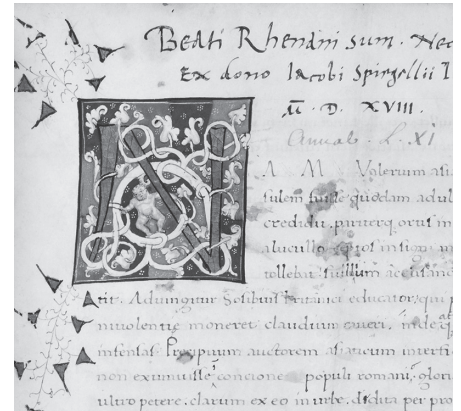 Beati Rhenani sum. Nec
Ex dono Iacobi Spiegellii
M. D. XVIII.
Annal. L. XI
N A M Valerium asi
sulem fuisse quedam adul
credidit, pariterq ortis in
alucullo quos insigni
tollebat suillium accusand
tit. Adiungitur Sosibius britanici educator, qui p
niuolentie moneret claudium caueri, inde
infensas. Precipuum auctorem asiaticum interfi
non eximuisse concione populi romani, glori
ultro petere, clarum ex eo in urbe, didita per pro